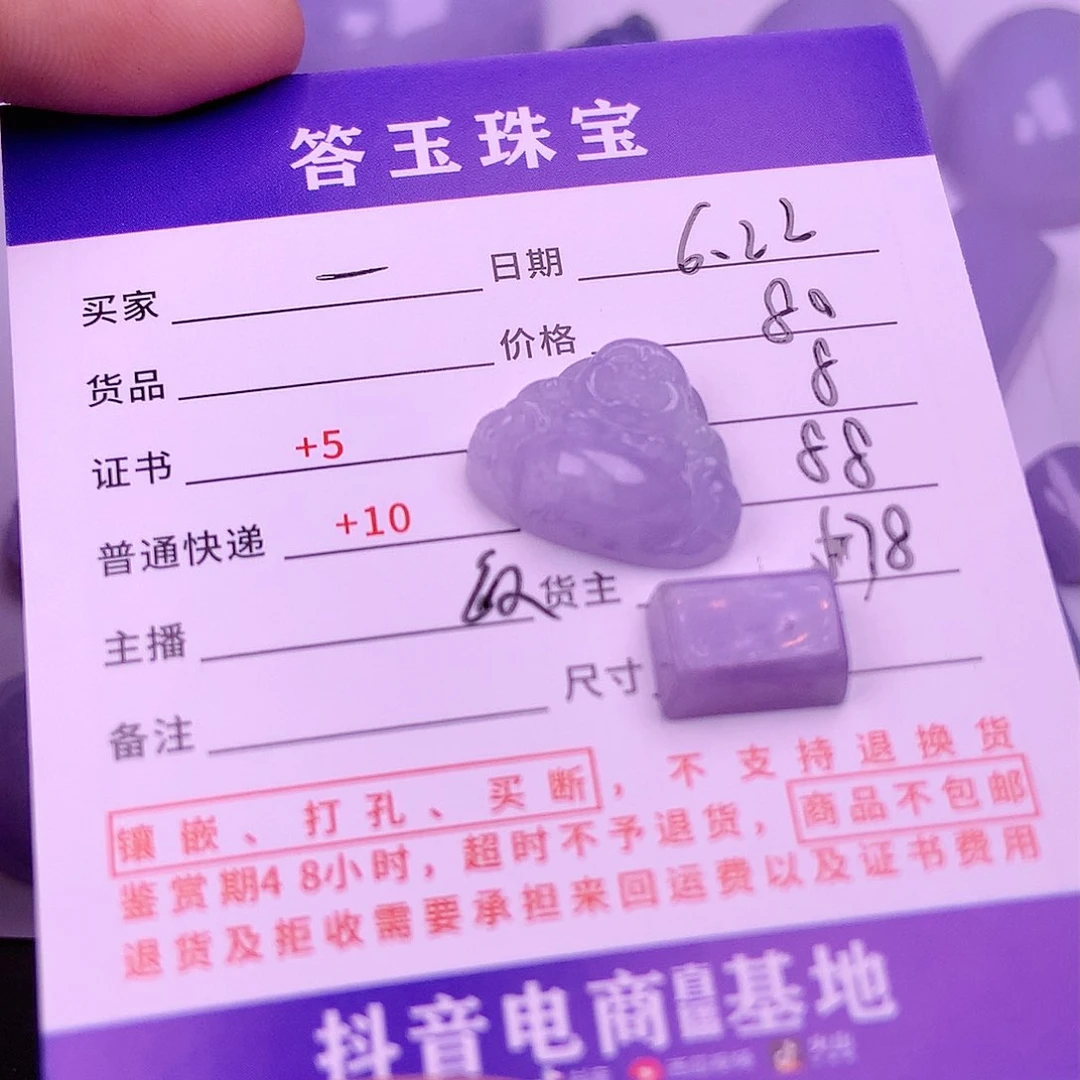 答玉珠宝
买家 一 日期 6.22
货品 价格 80
8
证书 +5 88
普通快递 +10
主播 货主
备注 尺寸
镶嵌、打孔、买断，不支持退换货
鉴赏期48小时，超时不予退货，商品不包邮
退货及拒收需要承担来回运费以及证书费用
抖音电商直播基地